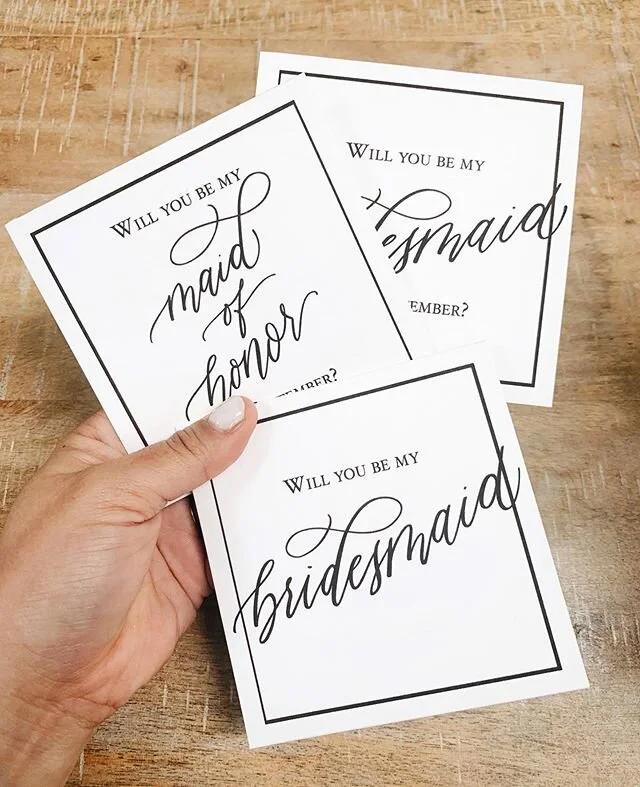 WILL YOU BE MY
maid
of
honor
EMBER?
WILL YOU BE MY
esmaid
EMBER?
WILL YOU BE MY
bridesmaid